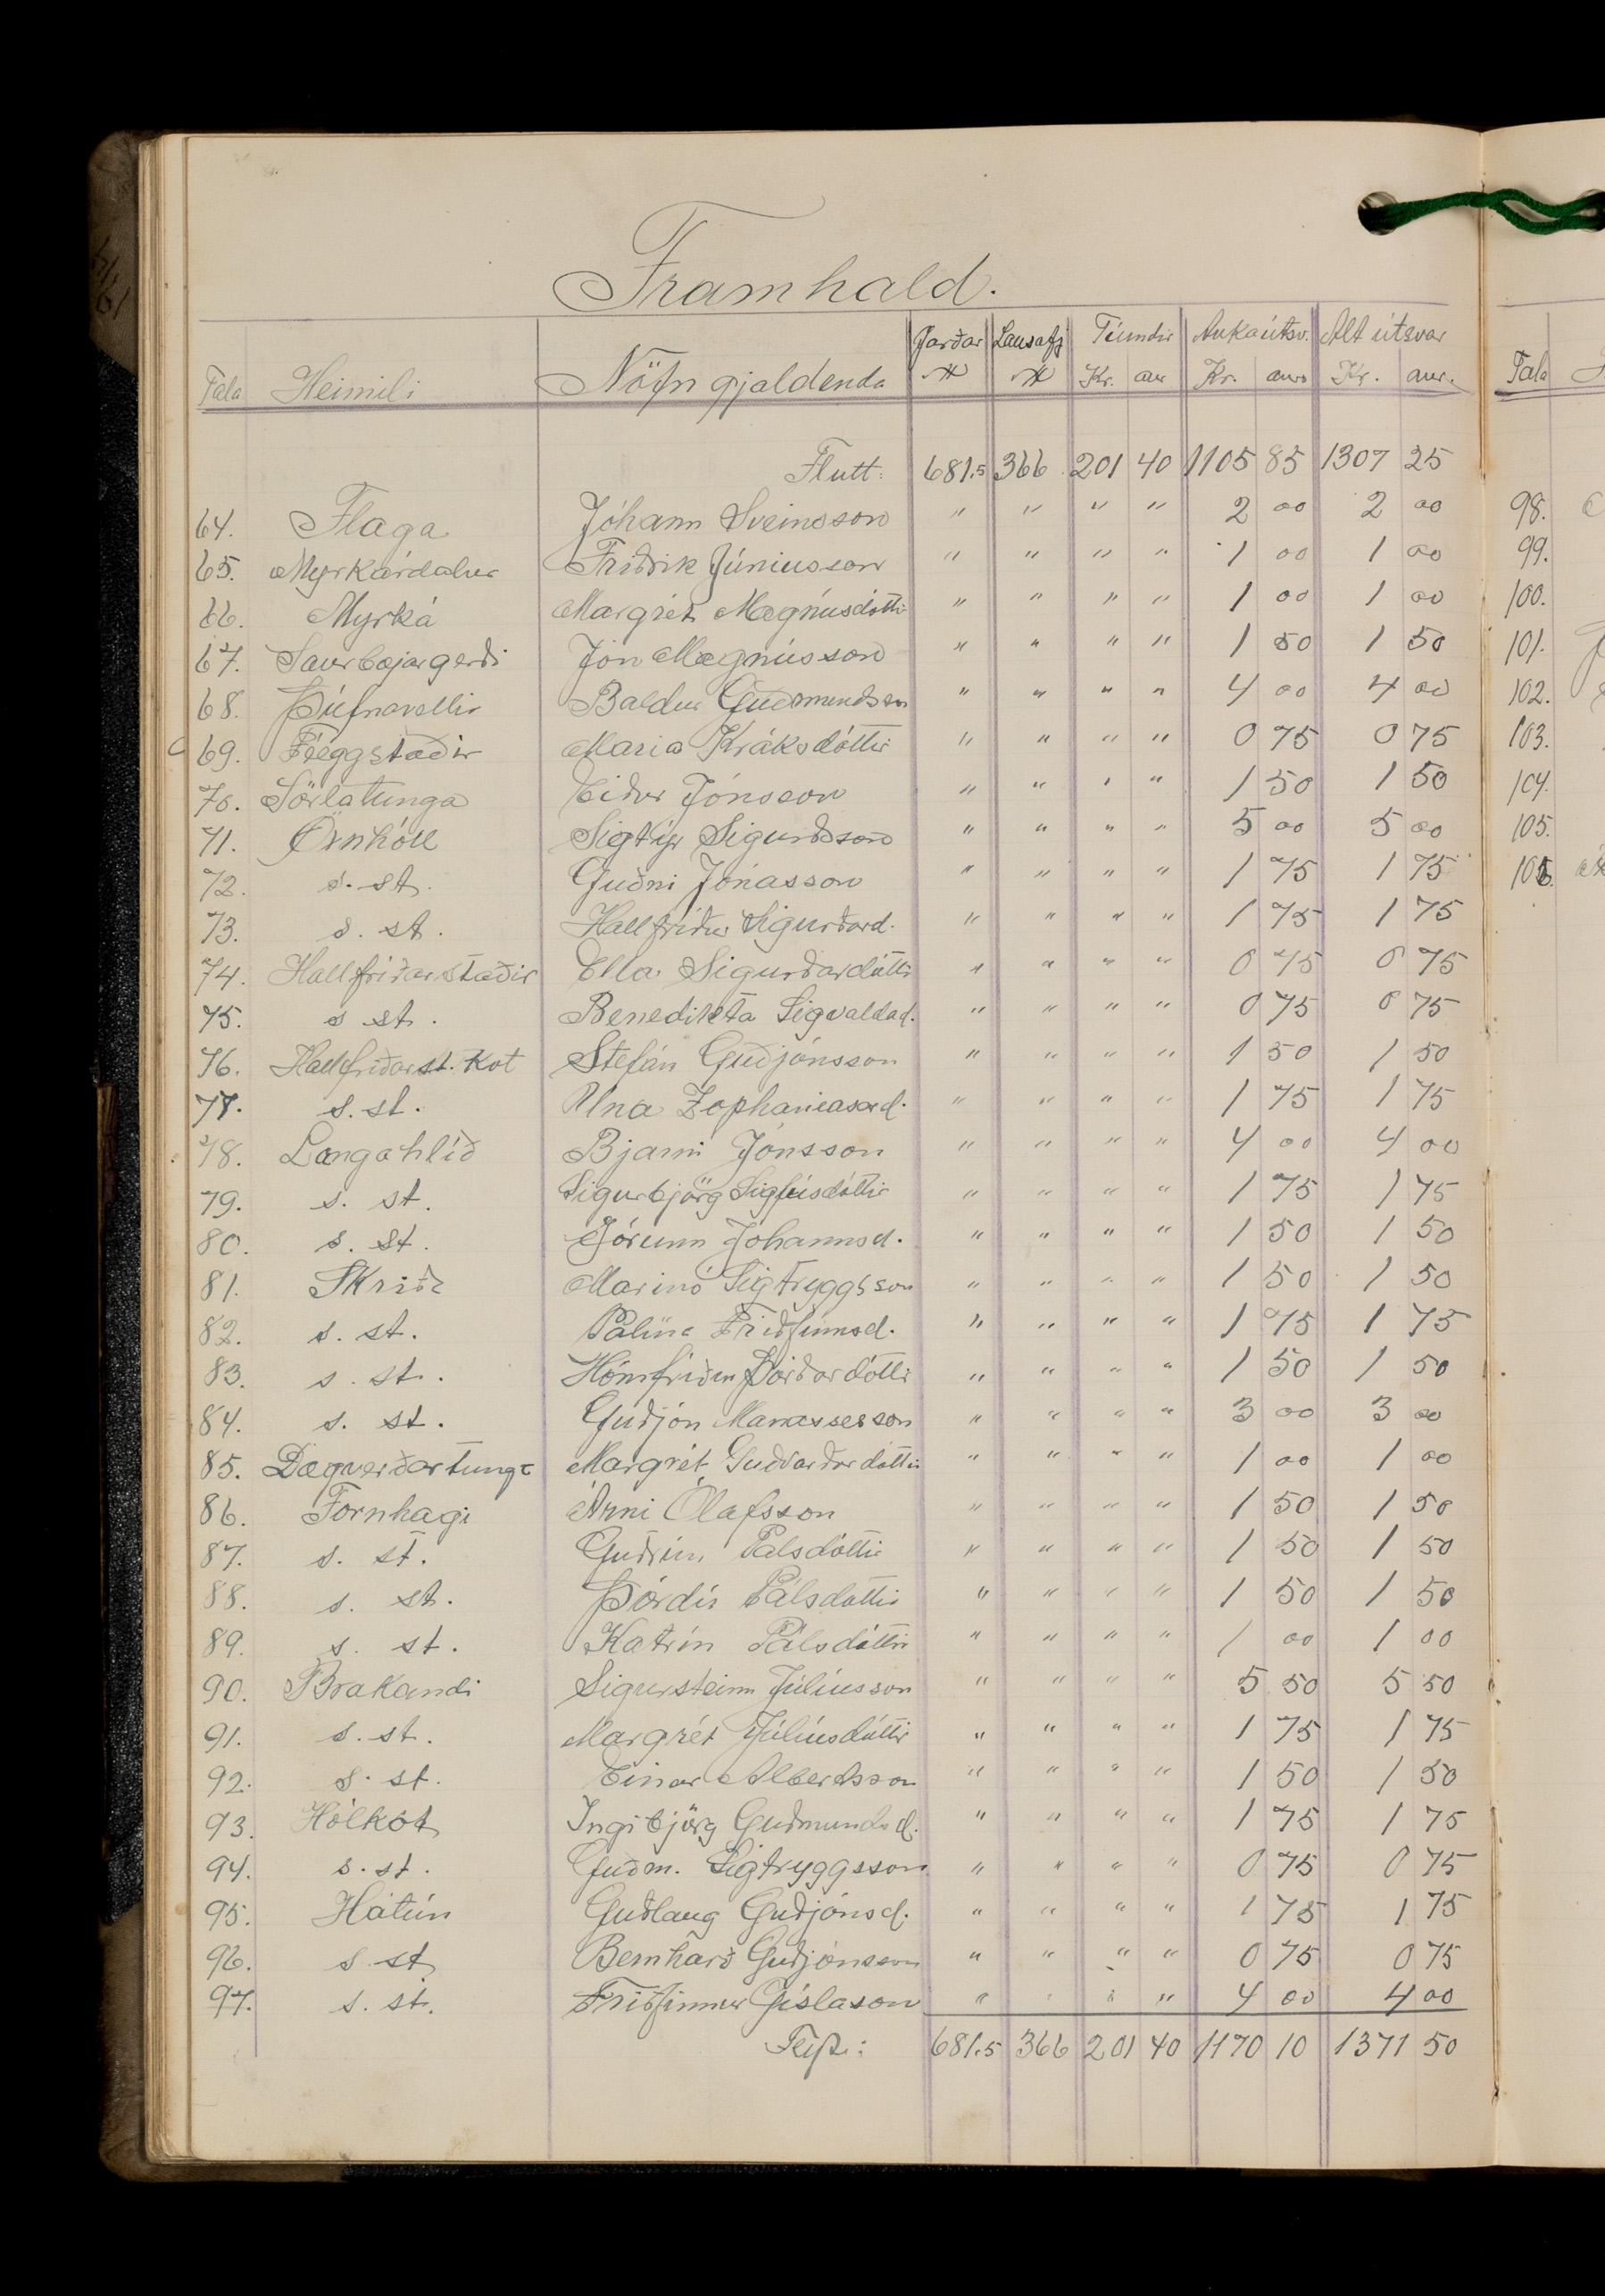 Framhald.
Tala Heimili Nöfn gjaldenda Jarðar Lausafj Tíundir Aukaútsv. Alt útsvar Tala
Kr. aur Kr. aur Kr. aur.
Flutt: 681.5 366 201 40 1105 85 1307 25
64. Flaga Jóhann Sveinsson " " " " 2 00 2 00 98.
65. Myrkárdalur Friðrik Júníusson " " " " 1 00 1 00 99.
66. Myrká Margrét Magnúsdóttir " " " " 1 00 1 00 100.
67. Saurbæjargerði Jón Magnússon " " " " 1 50 1 50 101.
68. Þúfnavellir Baldur Guðmundsson " " " " 4 00 4 00 102.
69. Féeggstaðir María Kráksdóttir " " " " 0 75 0 75 103.
70. Sörlatunga Eiður Jónsson " " " " 1 50 1 50 104.
71. Öxnhóll Sigtýr Sigurðsson " " " " 5 00 5 00 105.
72. s. st. Guðni Jónasson " " " " 1 75 1 75 106.
73. s. st. Hallfríður Sigurðard. " " " " 1 75 1 75
74. Hallfríðarstaðir Ella Sigurðardóttir " " " " 0 75 0 75
75. s st. Benedikta Sigvaldad. " " " " 0 75 0 75
76. Hallfríðarst. Kot Stefán Guðjónsson " " " " 1 50 1 50
77. s. st. Una Zophaníasard. " " " " 1 75 1 75
78. Langahlíð Bjarni Jónsson " " " " 4 00 4 00
79. s. st. Sigurbjörg Sigfúsdóttir " " " " 1 75 1 75
80. s. st. Jórunn Jóhannsd. " " " " 1 50 1 50
81. Skriða Marinó Sigtryggsson " " " " 1 50 1 50
82. s. st. Pálína Friðfinnsd. " " " " 1 75 1 75
83. s. st. Hómfríður Þórðardóttir " " " " 1 50 1 50
84. s. st. Guðjón Manassesson " " " " 3 00 3 00
85. Dagverðartunga Margrét Guðvarðardóttir " " " " 1 00 1 00
86. Fornhagi Árni Ólafsson " " " " 1 50 1 50
87. s. st. Guðrún Pálsdóttir " " " " 1 50 1 50
88. s. st. Þórdís Pálsdóttir " " " " 1 50 1 50
89. s. st. Katrín Pálsdóttir " " " " 1 00 1 00
90. Brakandi Sigursteinn Júlíusson " " " " 5 50 5 50
91. s. st. Margrét Júlíusdóttir " " " " 1 75 1 75
92. s. st. Einar Albertsson " " " " 1 50 1 50
93. Hólkot Ingibjörg Guðmundsd. " " " " 1 75 1 75
94. s. st. Guðm. Sigtryggsson " " " " 0 75 0 75
95. Hátún Guðlaug Guðjónsd. " " " " 1 75 1 75
96. s. st Bernharð Guðjónsson " " " " 0 75 0 75
97. s. st. Friðfinnur Gíslason " " " " 4 00 4 00
Flyt: 681.5 366 201 40 1170 10 1371 50